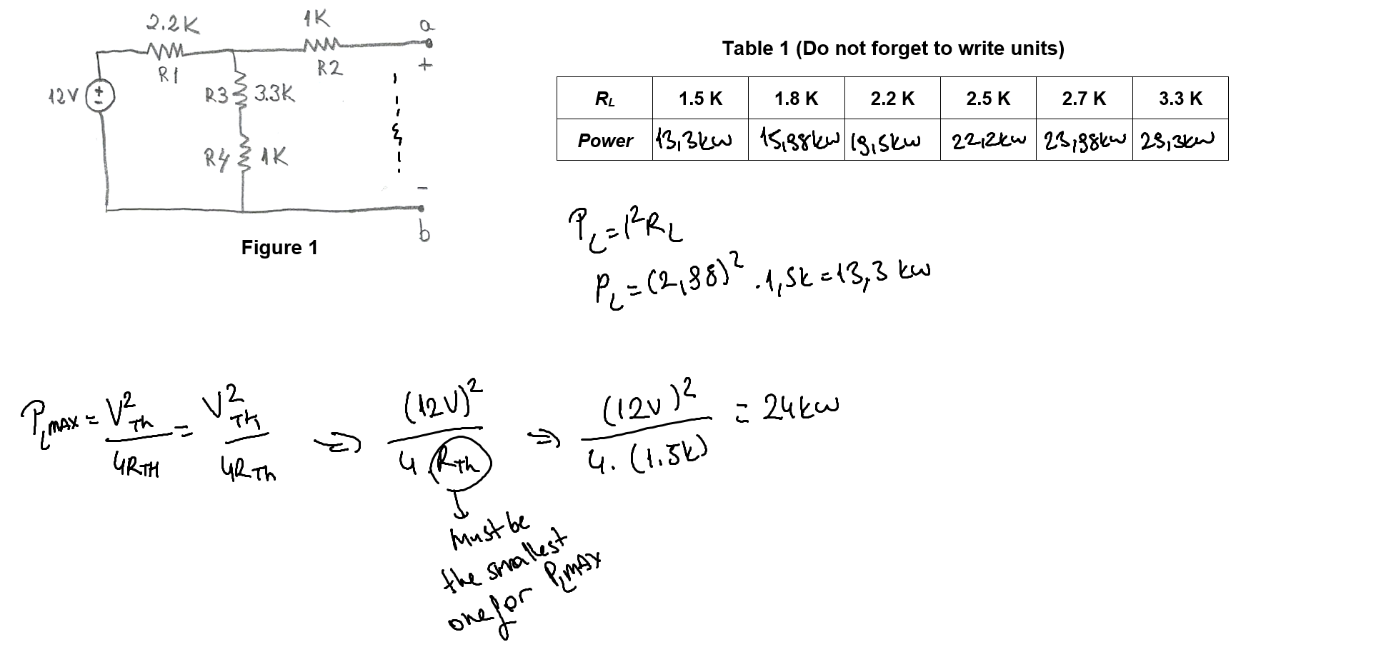 2.2K
1K
a
R1
R2
+
12V
R3
3.3K
R4
1K
-
b
Figure 1
Table 1 (Do not forget to write units)
RL 1.5 K 1.8 K 2.2 K 2.5 K 2.7 K 3.3 K
Power 13,3kw 15,98kw 19,5kw 22,2kw 23,98kw 29,3kw
PL=I²RL
PL=(2,98)².1,5k=13,3 kw
PLMAX = V²Th/4RTH = V²Th/4RTh => (12V)²/4.RTh => (12V)²/4.(1.5k) = 24kw
Must be
the smallest
one for PLMAX